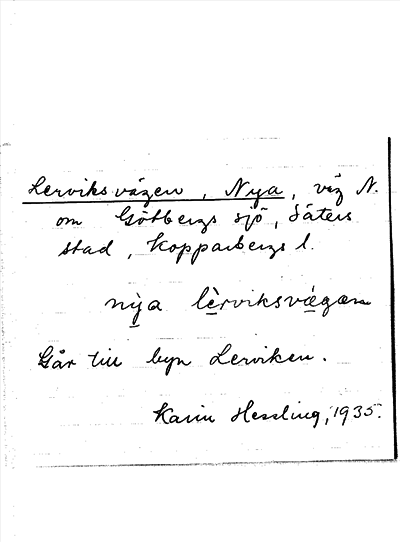 Lerviksvägen, Nya, väg N.
om Götbergs sjö, Säters
stad, Kopparbergs l.
nỳa lèrviksvägan
Går till byn Lerviken.
Karin Hessling, 1935.